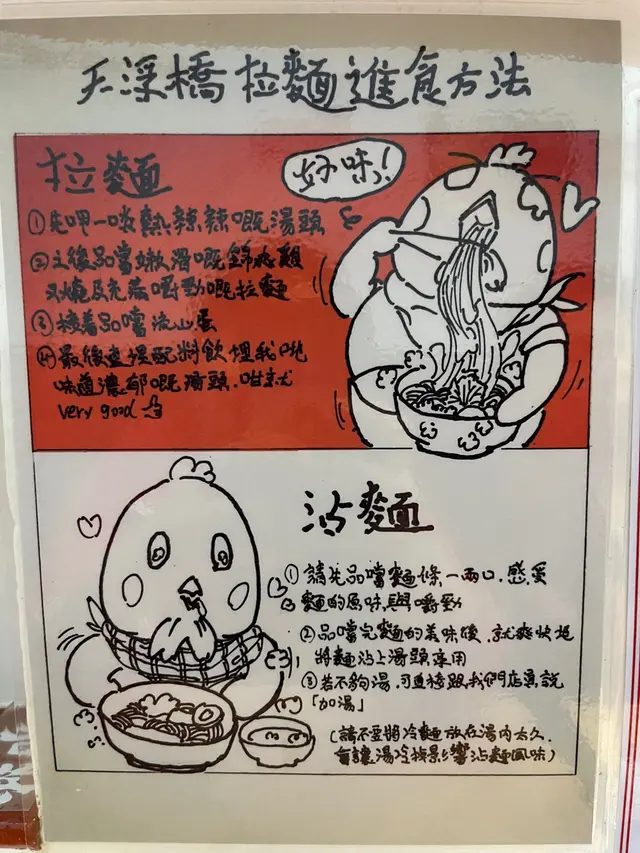 天深橋拉麵進食方法
拉麵
好味!
①先呷一啖熱辣辣嘅湯頭
②之後品嘗嫩滑嘅錦水雞
叉燒及充滿嚼勁嘅拉麵
③接著品嚐流心蛋
④最後查埋配料飲埋我哋
味道濃郁嘅湯頭.咁就
very good
沾麵
①請先品嚐麵條一兩口.感受
麵的原味與嚼勁
②品嚐完麵的美味後.就爽快地
將麵沾上湯頭享用
③若不夠湯.可直接跟我們店員說
「加湯」
(請不要將冷麵放在湯內太久.
會讓湯冷掉影響沾麵風味)